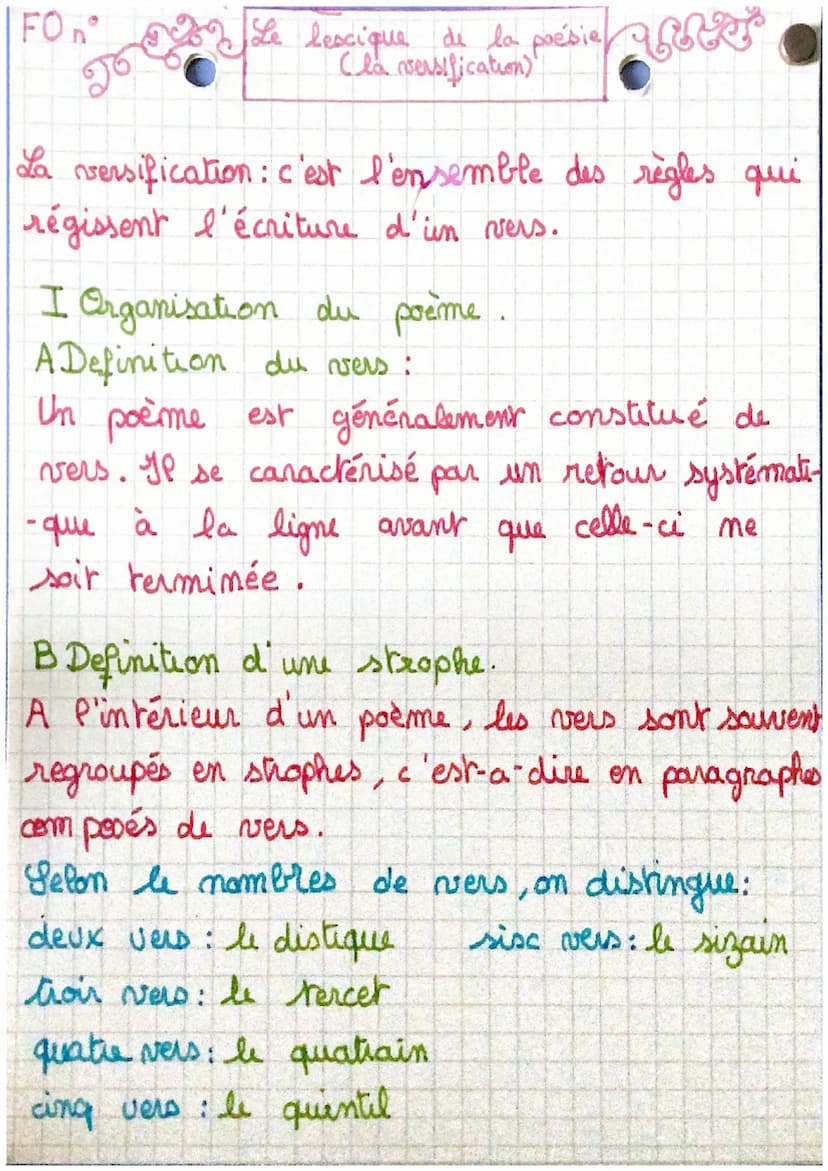 FO n°
Le lexique de la poésie
(la versification)
La versification : c'est l'ensemble des règles qui
régissent l'écriture d'un vers.
I Organisation du poème.
A Definition du vers :
Un poème est généralement constitué de
vers. Il se caractérisé par un retour systémati-
-que à la ligne avant que celle-ci ne
soit terminée.
B Definition d'une strophe.
A l'intérieur d'un poème, les vers sont souvent
regroupés en strophes, c'est-a-dire en paragraphes
composés de vers.
Selon le nombres de vers, on distingue :
deux vers : le distique six vers : le sizain
trois vers : le tercet
quatre vers : le quatrain
cinq vers : le quintil